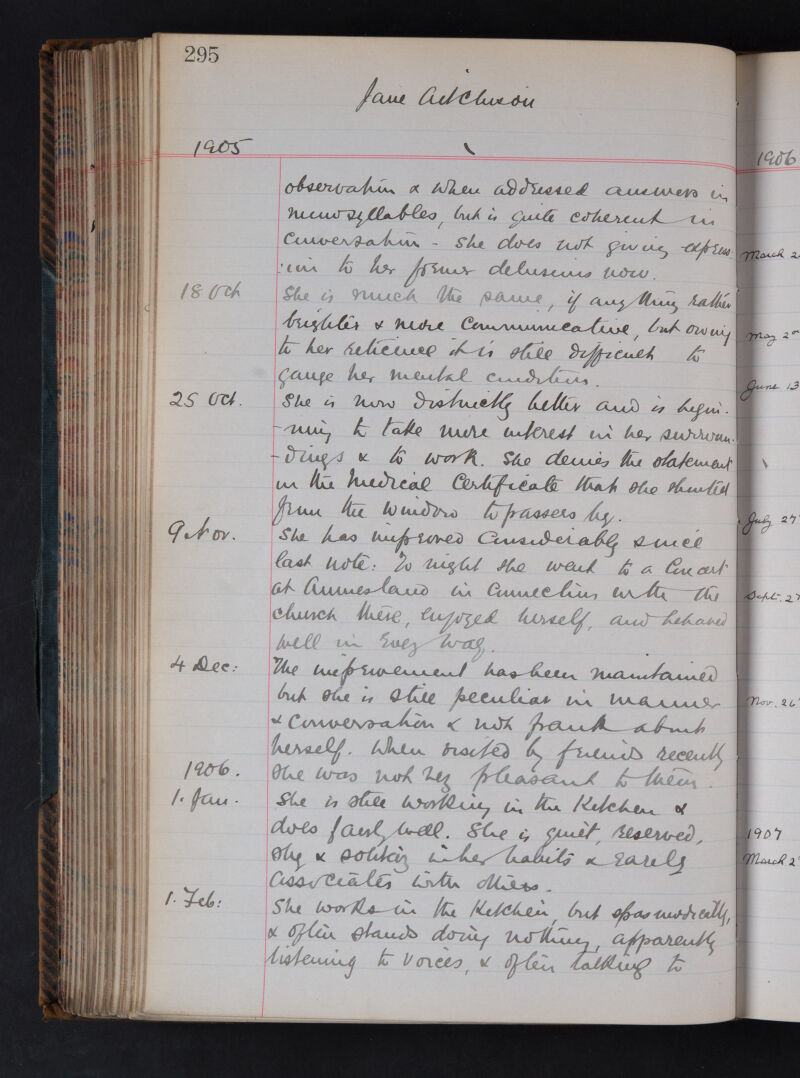 295
Jane Aitchison
1905
observation & when addressed answers in
monosyllables, but is quite coherent in
conversation - She does not giving express
:ion to her former delusions now.
18 Oct She is much the same, if anything rather
brighter & more communicative, but owing
to her reticence it is still difficult to
gauge her mental condition.
25 Oct. She is now distinctly better and is begin-
-ning to take more interest in her surroun-
-dings & to work. She denies the statement
in the Medical Certificate that she shouted
from the window to passers by.
9 Nov. She has improved considerably since
last note: To night she went to a Concert
at Anniesland in connection with the
church there, enjoyed herself, and behaved
well in every way.
4 Dec: The improvement has been maintained
but she is still peculiar in manner
& conversation & not frank about
herself. When visited by friends recently
1906. She was not very pleasant to them.
1. Jan. She is still working in the Kitchen &
does fairly well. She is quiet, reserved,
shy & solitary in her habits & rarely
associates with others.
1. Feb: She works in the Kitchen, but spasmodically,
& often stands doing nothing, apparently
listening to voices, & often talking to
1906
March 2
May 2
June 13
July 27
Sept. 27
Nov. 26
1907
March 2